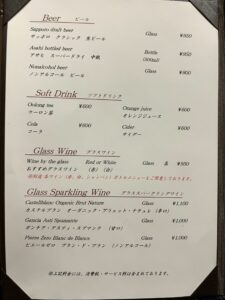 Beer ビール
Sapporo draft beer Glass ¥950
サッポロ クラシック 生ビール
Asahi bottled beer Bottle ¥950
アサヒ スーパードライ 中瓶 (500ml)
Nonalcohol beer Glass ¥800
ノンアルコール ビール
Soft Drink ソフトドリンク
Oolong tea ¥600 Orange juice ¥600
ウーロン茶 オレンジジュース
Cola ¥600 Cider ¥600
コーラ サイダー
Glass Wine グラスワイン
Wine by the glass Red or White Glass 各 ¥950
おすすめグラスワイン (赤) (白)
Glass Sparkling Wine グラススパークリングワイン
Castellblanc Organic Brut Nature Glass ¥1,100
カステルブラン オーガニック・ブリュット・ナチュレ (辛口)
Gancia Asti Spumante Glass ¥1,000
ガンチア・アスティ・スプマンテ (甘口)
Pierre Zero Blanc de Blancs Glass ¥1,000
ピエールゼロ ブラン・ド・ブラン (ノンアルコール)
※上記料金には、消費税・サービス料は含まれております。